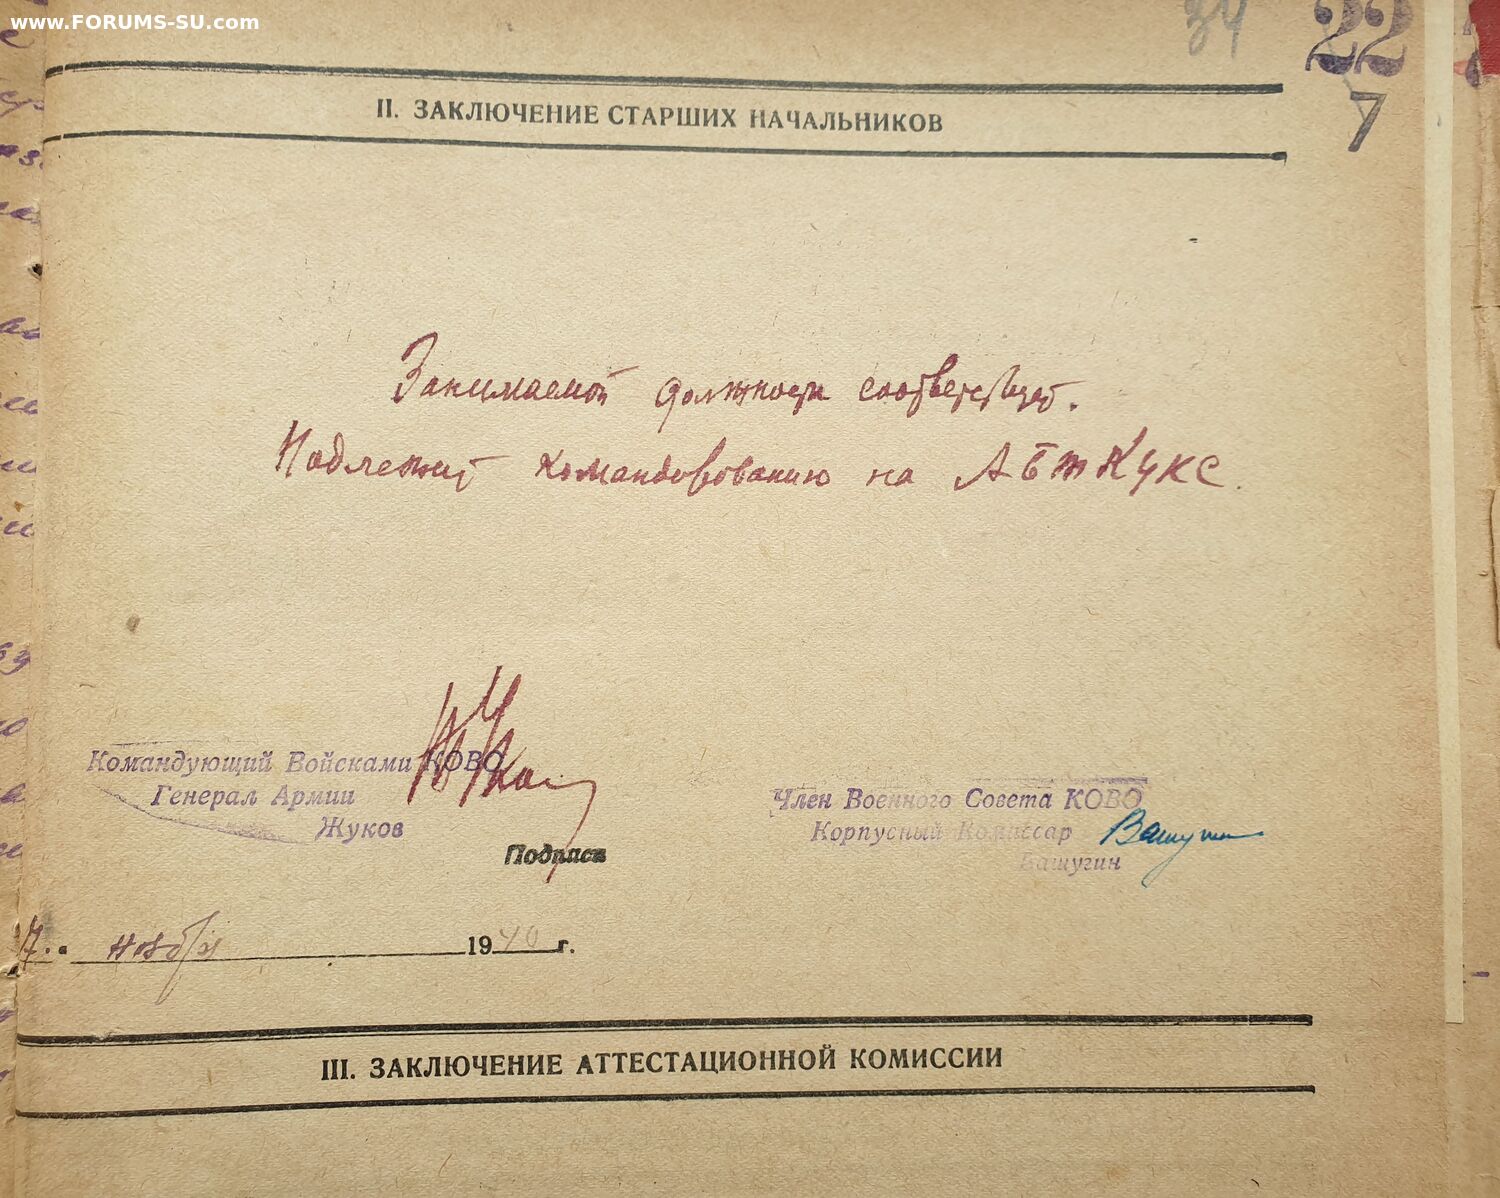 www.FORUMS-SU.com
34
22
7
II. ЗАКЛЮЧЕНИЕ СТАРШИХ НАЧАЛЬНИКОВ
Занимаемой должности соответствует.
Подлежит командорованию на АБТКУКС.
Командующий Войсками КОВО
Генерал Армии
Жуков
Подпись
Член Военного Совета КОВО
Корпусный Комиссар
Вашугин
7. " ноября 1940 г.
III. ЗАКЛЮЧЕНИЕ АТТЕСТАЦИОННОЙ КОМИССИИ